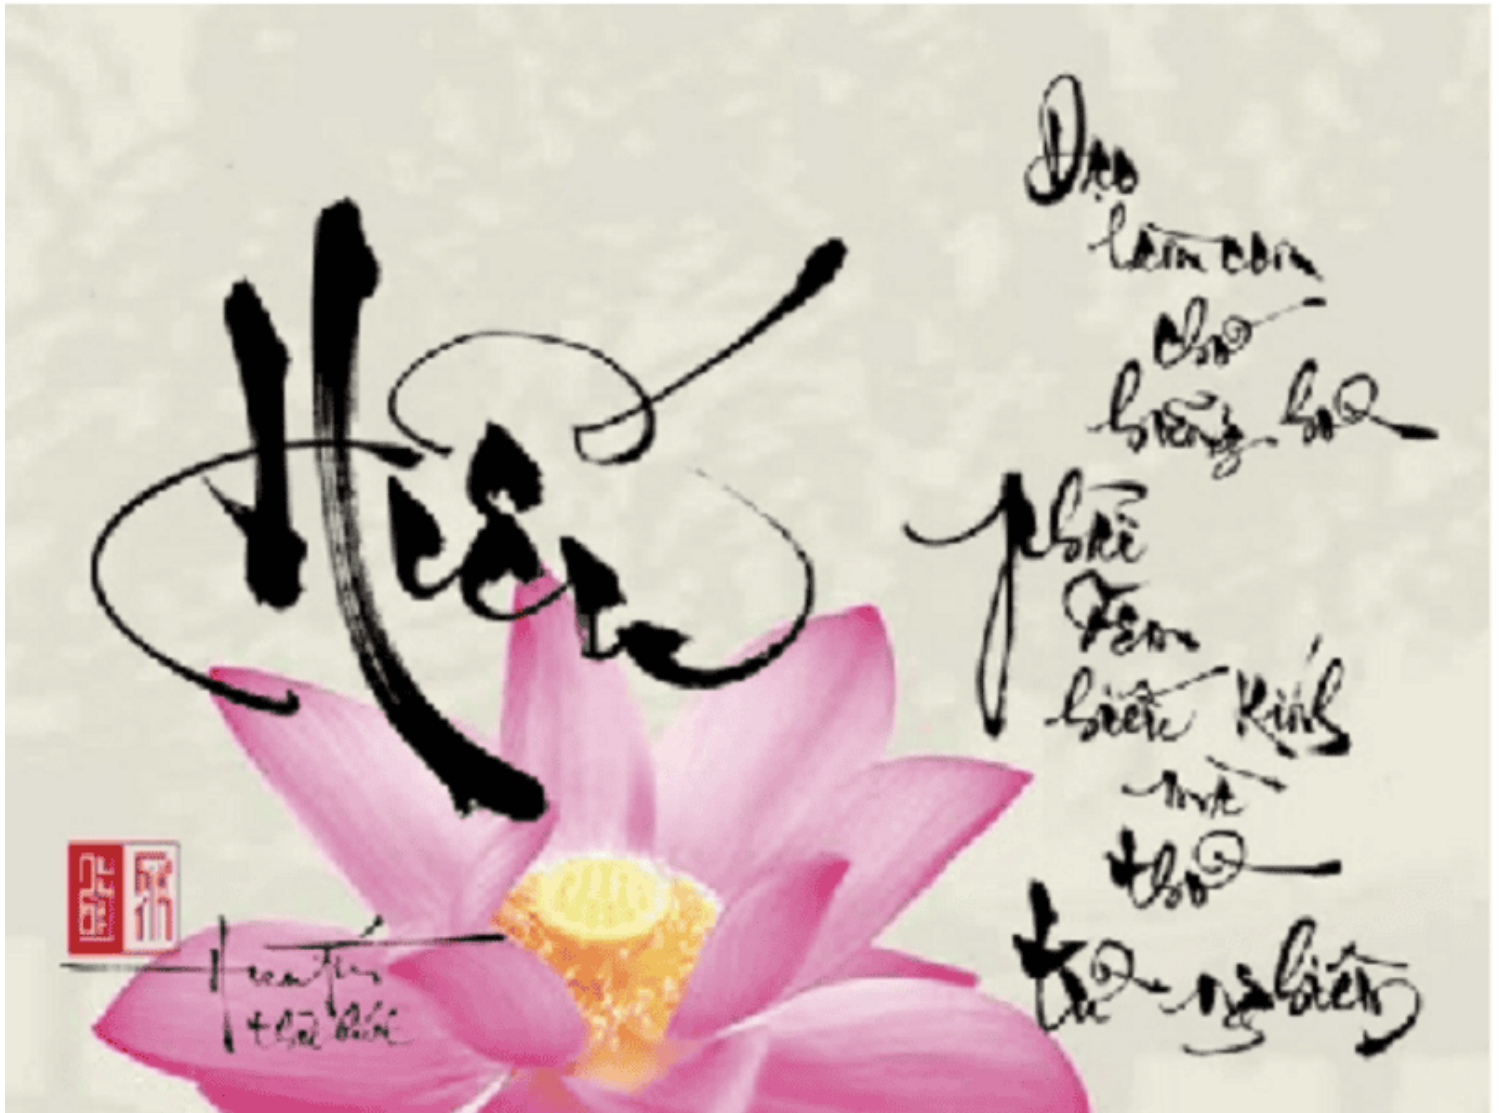 Hiếu
Đạo
làm con
chớ
hững hờ
phải
đem
biếu kính
mà
thờ
từ nghiêm